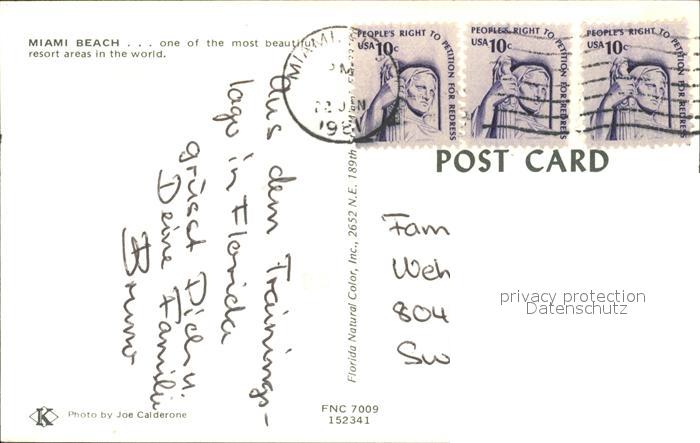 MIAMI BEACH . . . one of the most beautiful
resort areas in the world.
Aus dem Trainings-
lage in Florida
grüsst Dich u.
Deine Familie
Bruno
Photo by Joe Calderone
K
Florida Natural Color, Inc., 2652 N.E. 189th
FNC 7009
152341
MIAMI,
PM
JAN
19
PEOPLE'S RIGHT TO PETITION FOR REDRESS
USA 10c
PEOPLE'S RIGHT TO PETITION FOR REDRESS
USA 10c
PEOPLE'S RIGHT TO PETITION FOR REDRESS
USA 10c
POST CARD
Fam
Weh
804
Sw
privacy protection
Datenschutz